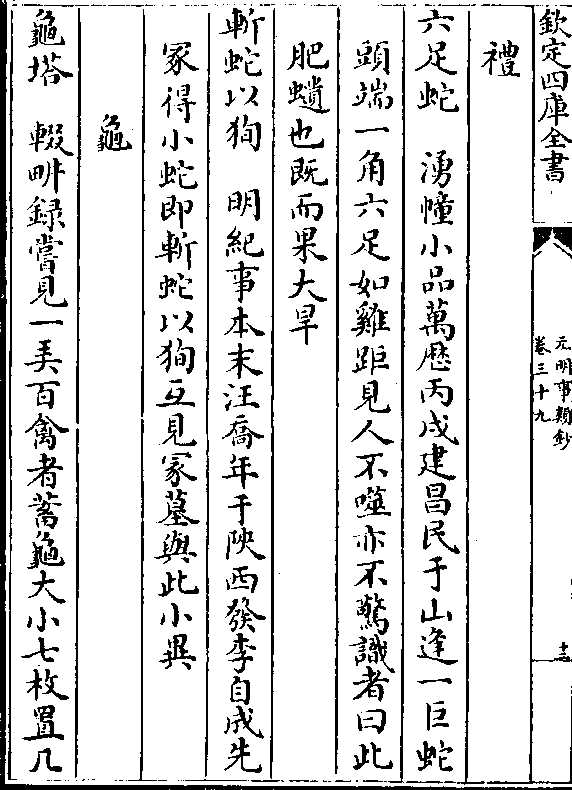 欽定四庫全書
元明事類鈔
卷三十九
十三
禮
六足蛇　湧幢小品萬歷丙戌建昌民于山逢一巨蛇
頭端一角六足如雞距見人不噬亦不驚識者曰此
肥蟥也既而果大旱
斬蛇以狥　明紀事本末汪喬年于陜西發李自成先
冢得小蛇即斬蛇以狥互見冢墓與此小異
龜
龜塔　輟畊録嘗見一弄百禽者蓄龜大小七枚置几